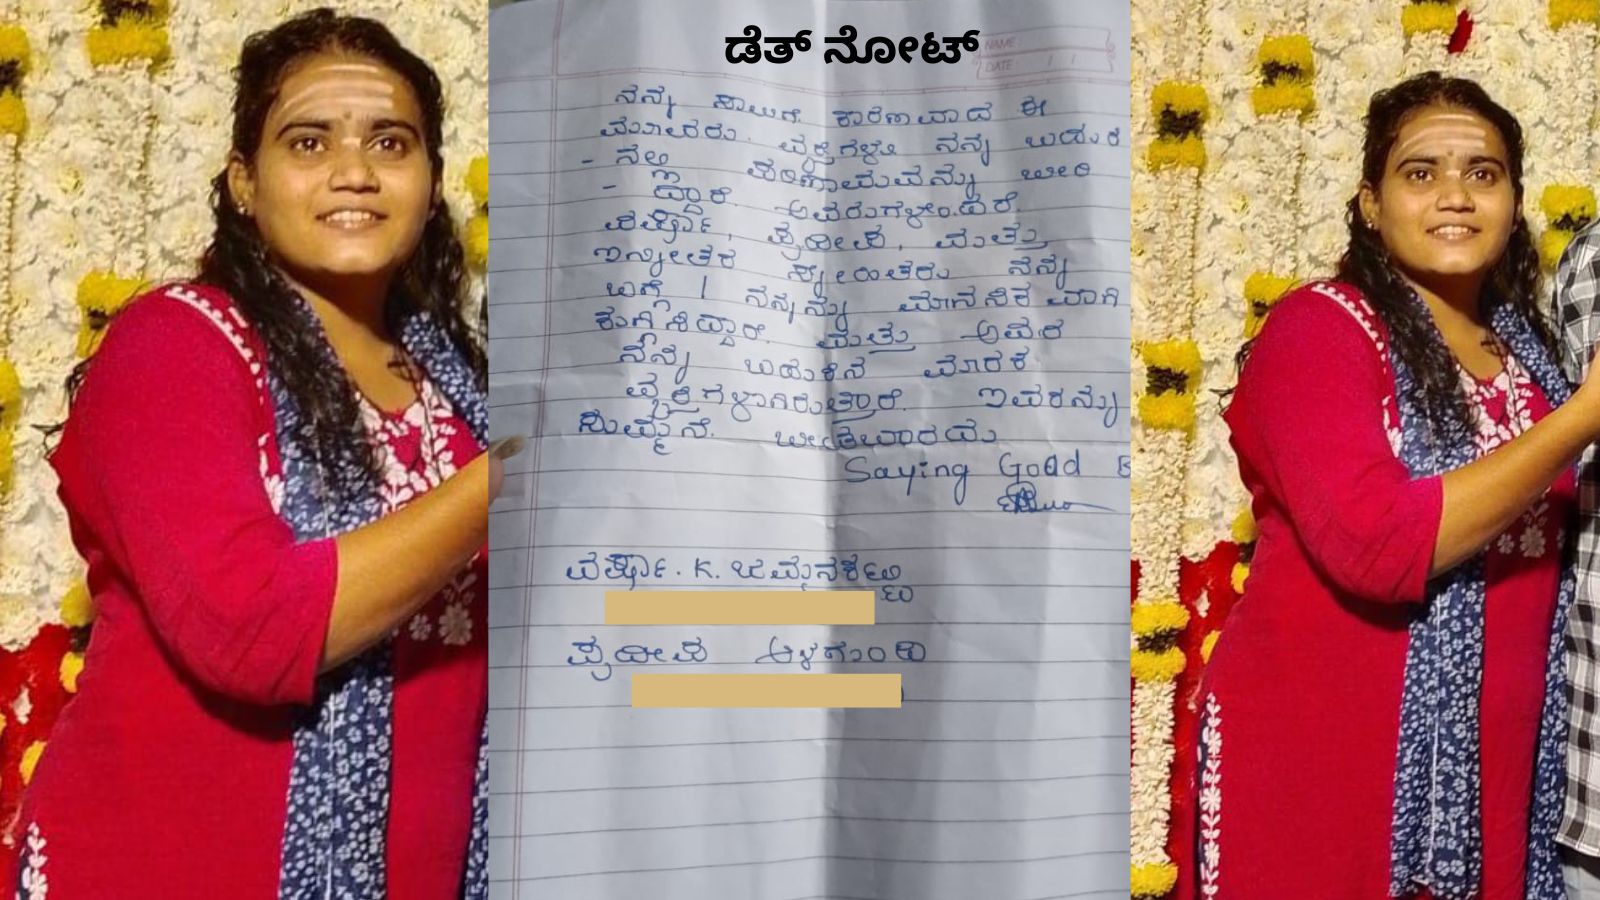 ಡೆತ್ ನೋಟ್
NAME:
DATE: / /
ನನ್ನ ಸಾವಿಗೆ ಕಾರಣವಾದ ಈ
ಮೂವರು. ವ್ಯಕ್ತಿಗಳು ನನ್ನ ಬದುಕಿ
- ನಲ್ಲಿ ಪರಿಣಾಮವನ್ನು ಬೀರಿ
- ದ್ದಾರೆ. ಅವರುಗಳೆಂದರೆ
ವರ್ಷಾ, ಪ್ರದೀಪ, ಮತ್ತು
ಇನ್ನೀತರ ಸ್ನೇಹಿತರು ನನ್ನ
ಬಗ್ಗೆ / ನನ್ನನ್ನು ಮಾನಸಿಕವಾಗಿ
ಕುಗ್ಗಿಸಿದ್ದಾರೆ. ಮತ್ತು ಅವರೆ
ನನ್ನ ಬದುಕಿನ ಮಾರಕ
ವ್ಯಕ್ತಿಗಳಾಗಿರುತ್ತಾರೆ. ಇವರನ್ನು
ಸುಮ್ಮನೆ. ಬೀಡಬಾರದು
Saying Good B
ವರ್ಷಾ. K.
ಪ್ರದೀಪ ಅಳಗುಂಡಿ